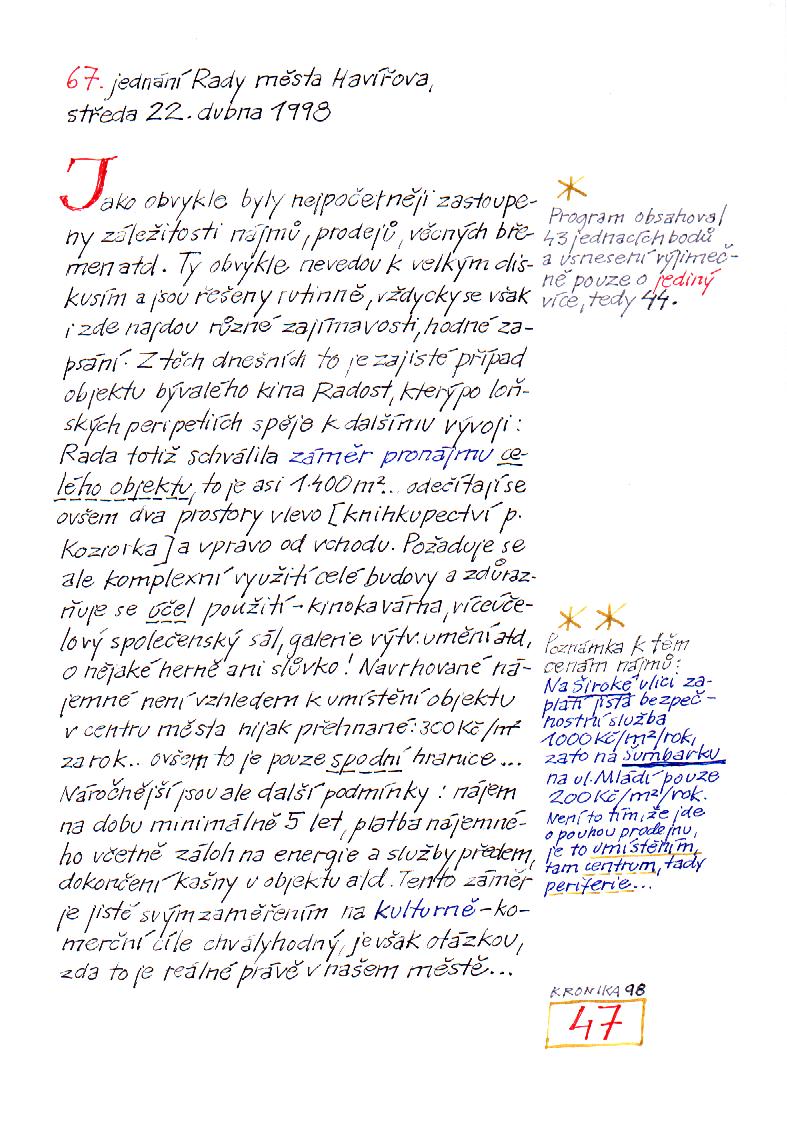 67. jednání Rady města Havířova,
středa 22. dubna 1998
Jako obvykle byly nejpočetněji zastoupe-
ny záležitosti nájmů, prodejů, věcných bře-
men atd. Ty obvykle nevedou k velkým dis-
kusím a jsou řešeny rutinně, vždycky se však
i zde najdou různé zajímavosti, hodné za-
psání. Z těch dnešních to je zajisté případ
objektu bývalého kina Radost, který po loň-
ských peripetiích spěje k dalšímu vývoji:
Rada totiž schválila záměr pronájmu ce-
lého objektu, to je asi 1.400 m².. odečítají se
ovšem dva prostory vlevo [knihkupectví p.
Koziorka] a vpravo od vchodu. Požaduje se
ale komplexní využití celé budovy a zdůraz-
ňuje se účel použití - kinokavárna, víceúče-
lový společenský sál, galerie výtv. umění atd,
o nějaké herně ani slůvko! Navrhované ná-
jemné není vzhledem k umístění objektu
v centru města nijak přehnané: 300 Kč/m²
za rok.. ovšem to je pouze spodní hranice...
Náročnější jsou ale další podmínky: nájem
na dobu minimálně 5 let, platba nájemné-
ho včetně záloh na energie a služby předem,
dokončení kašny v objektu atd. Tento záměr
je jistě svým zaměřením na kulturně-ko-
merční cíle chvályhodný, je však otázkou,
zda to je reálné právě v našem městě...
*
Program obsahoval
43 jednacích bodů
a usnesení výjimeč-
ně pouze o jediný
více, tedy 44.
* *
Poznámka k těm
cenám nájmů:
Na Široké ulici za-
platí jistá bezpeč-
nostní služba
1000 Kč/m²/rok,
zato na Šumbarku
na ul. Mládí pouze
200 Kč/m²/rok.
Není to tím, že jde
o pouhou prodejnu,
je to umístěním,
tam centrum, tady
periferie...
KRONIKA 98
47